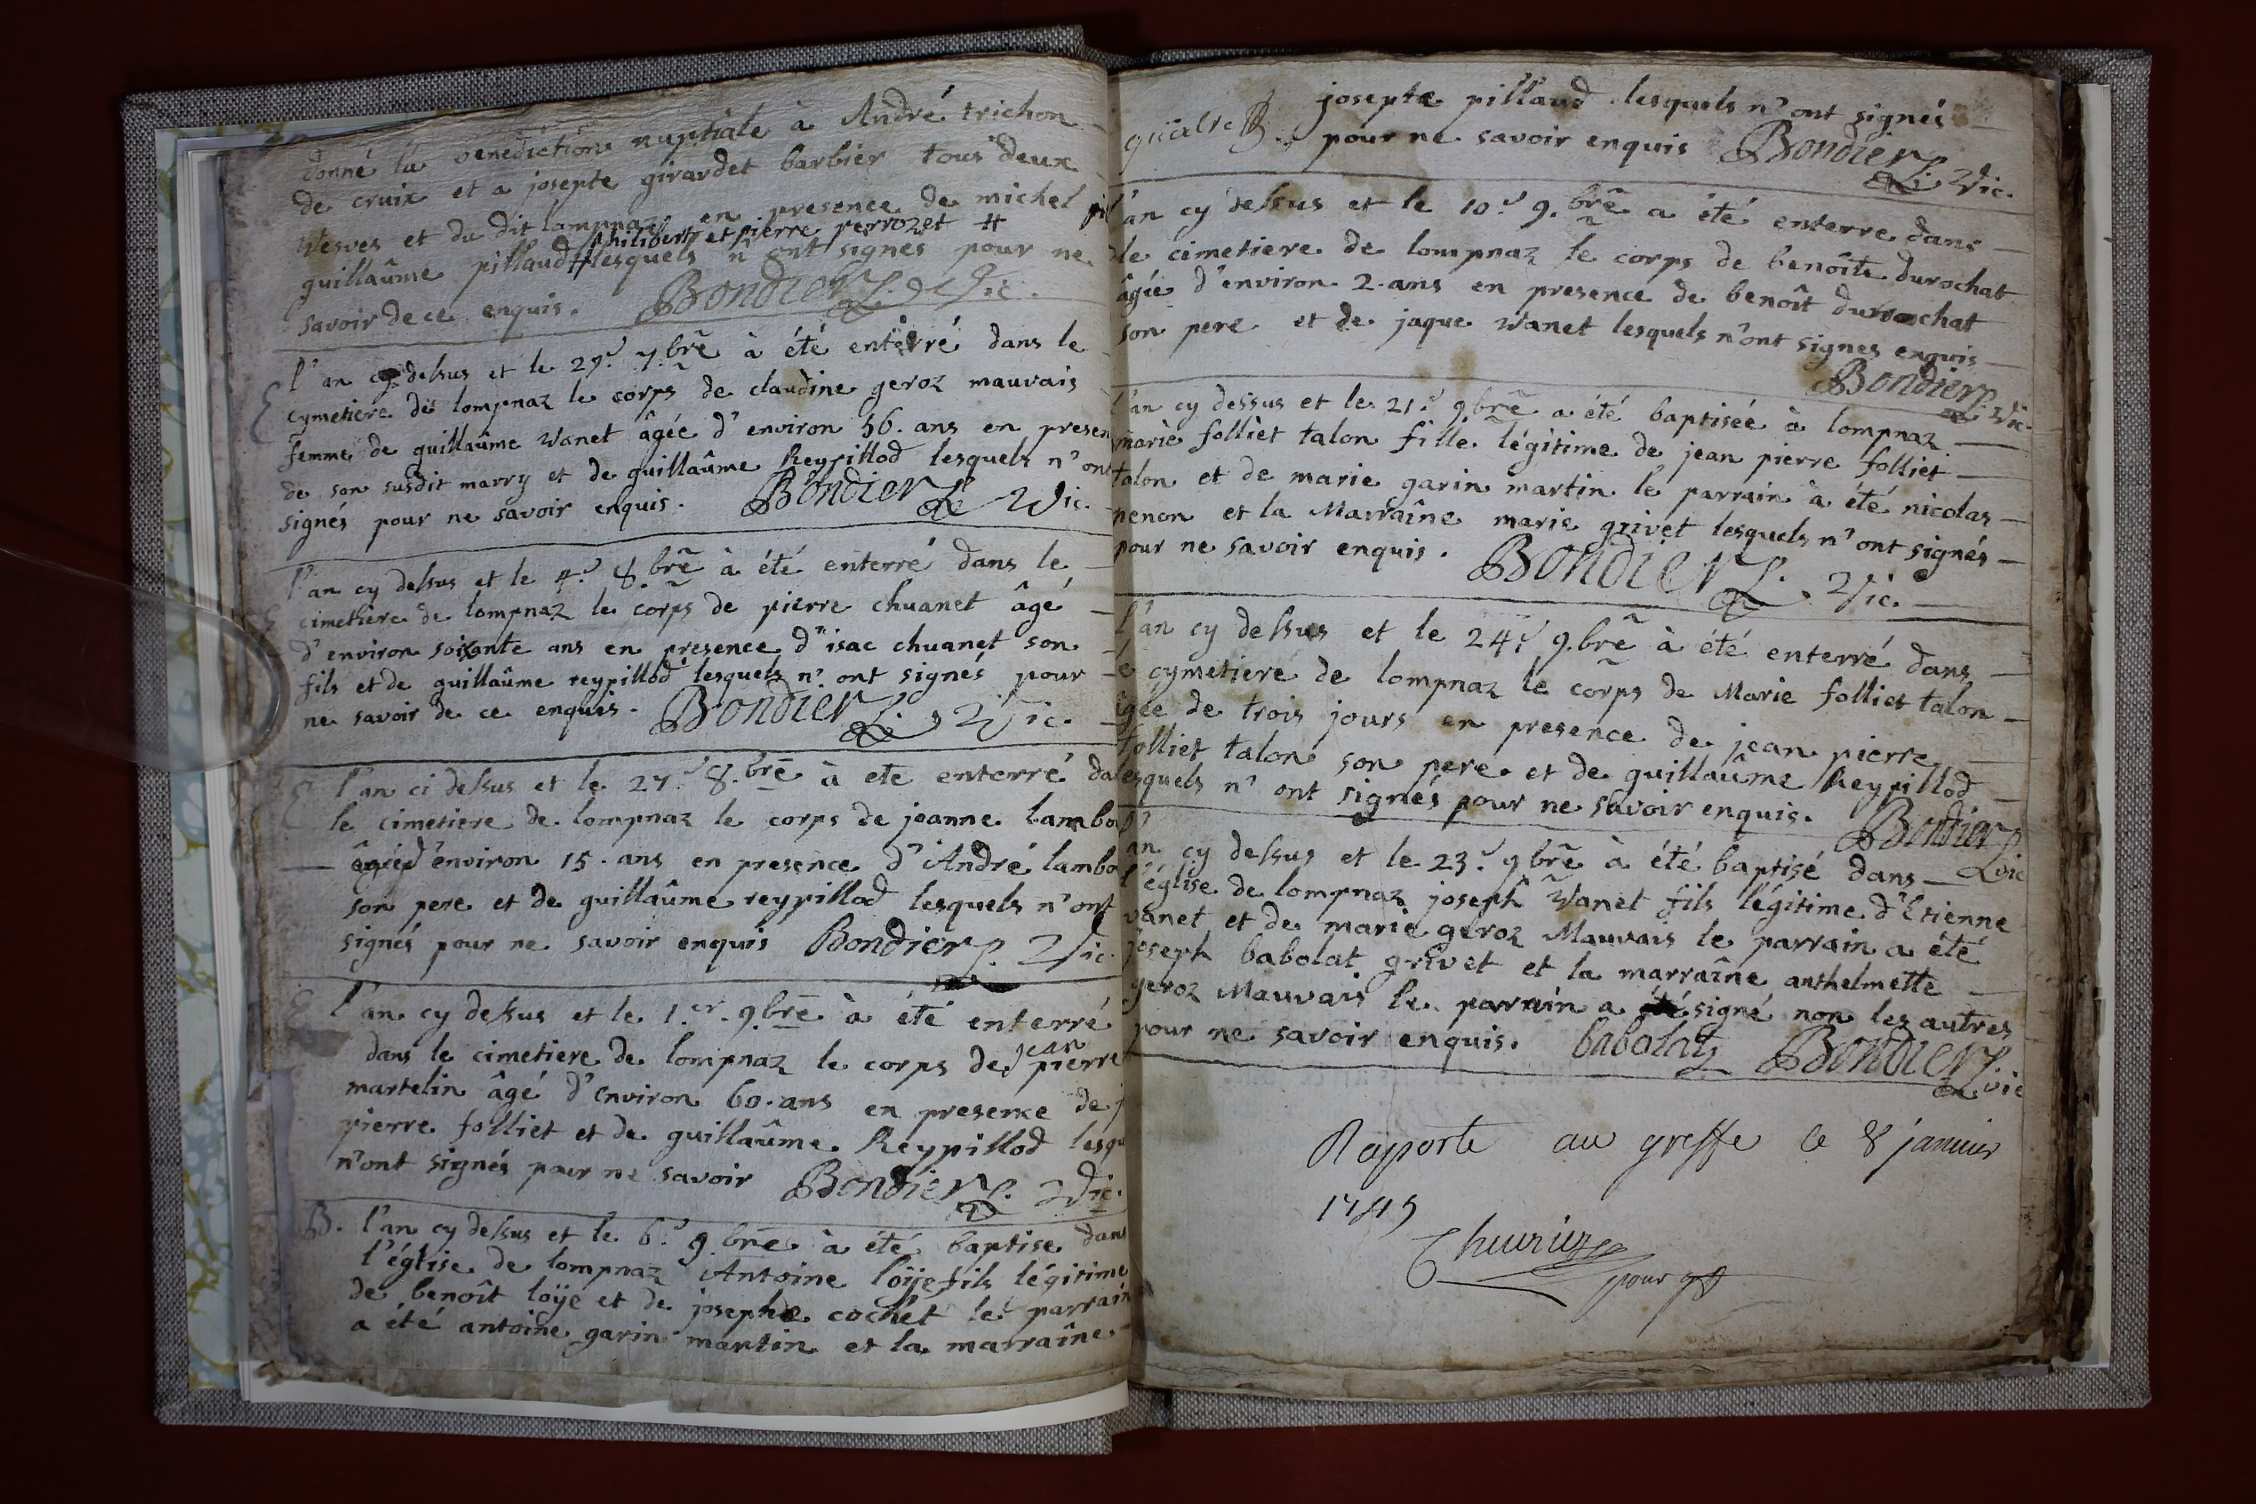 donné la benediction nuptiale à André trichon
de cruix et a josepte girardet barbier tous deux
Vesves et du dit lompnaz en presence de michel
philibert et pierre perrozet #
guillaûme pillaud # lesquels n'ont signes pour ne
savoir de ce enquis. Bondier 2 Vic.
l'an cy dessus et le 29.e 7.bre à été enterré dans le
E cymetiere de lompnaz le corps de claudine geroz mauvais
femme de guillaûme Vanet âgée d'environ 56. ans en presen
de son susdit marry et de guillaûme Reypillod lesquels n'ont
signés pour ne savoir enquis. Bondier Vic.
l'an cy dessus et le 4.e 8.bre à été enterré dans le
E cimethere de lompnaz le corps de pierre chuanet âgé
d'environ soixante ans en presence d'isac chuanet son
fils et de guillaûme reypillod lesquels n'ont signés pour
ne savoir de ce enquis. Bondier Vic.
E l'an ci dessus et le 27.e 8.bre à ete enterré da
le cimetiere de lompnaz le corps de jeanne lambo
âgée d'environ 15. ans en presence d'André lambo
son pere et de guillaûme reypillod lesquels n'ont
signés pour ne savoir enquis Bondier Vic.
E l'an cy dessus et le 1.er 9.bre à été enterré
dans le cimetiere de lompnaz le corps de jean pierre
martelin âgé d'environ 60. ans en presence de j
pierre folliet et de guillaûme Reypillod lesqu
n'ont signés pour ne savoir Bondier Vic.
B. l'an cy dessus et le 6.e 9.bre à été baptise dans
l'église de lompnaz Antoine loÿe fils légitime
de benoît loÿe et de josephe cochet le parrain
a été antoine garin martin et la marraîne
josepte pillaud lesquels n'ont signés
pour ne savoir enquis Bondier Vic.
l'an cy dessus et le 10.e 9.bre a été enterre dans
le cimetiere de lompnaz le corps de benôite durochat
âgée d'environ 2. ans en presence de benoît durochat
son pere et de jaque Vanet lesquels n'ont signes enquis
Bondier Vic.
l'an cy dessus et le 21.e 9.bre a été baptisée à lompnaz
marie folliet talon fille légitime de jean pierre folliet
talon et de marie garin martin le parrain à été nicolas
penon et la Marraîne marie grivet lesquels n'ont signés
pour ne savoir enquis. Bondier Vic.
l'an cy dessus et le 24.e 9.bre à été enterré dans
le cymetiere de lompnaz le corps de Marie folliet talon
âgée de trois jours en presence de jean pierre
folliet talon son pere et de guillaûme Reypillod
lesquels n'ont signés pour ne savoir enquis. Bondier
vic
l'an cy dessus et le 23.e 9bre à été baptisé dans
l'église de lompnaz joseph Vanet fils légitime d'Etienne
vanet et de marie geroz Mauvais le parrain a été
joseph babolat grivet et la marraîne anthelmette
geroz Mauvais le parrain a signé non les autres
pour ne savoir enquis. babolat Bondier vic
Raporte au greffe le 8 janvier
1745